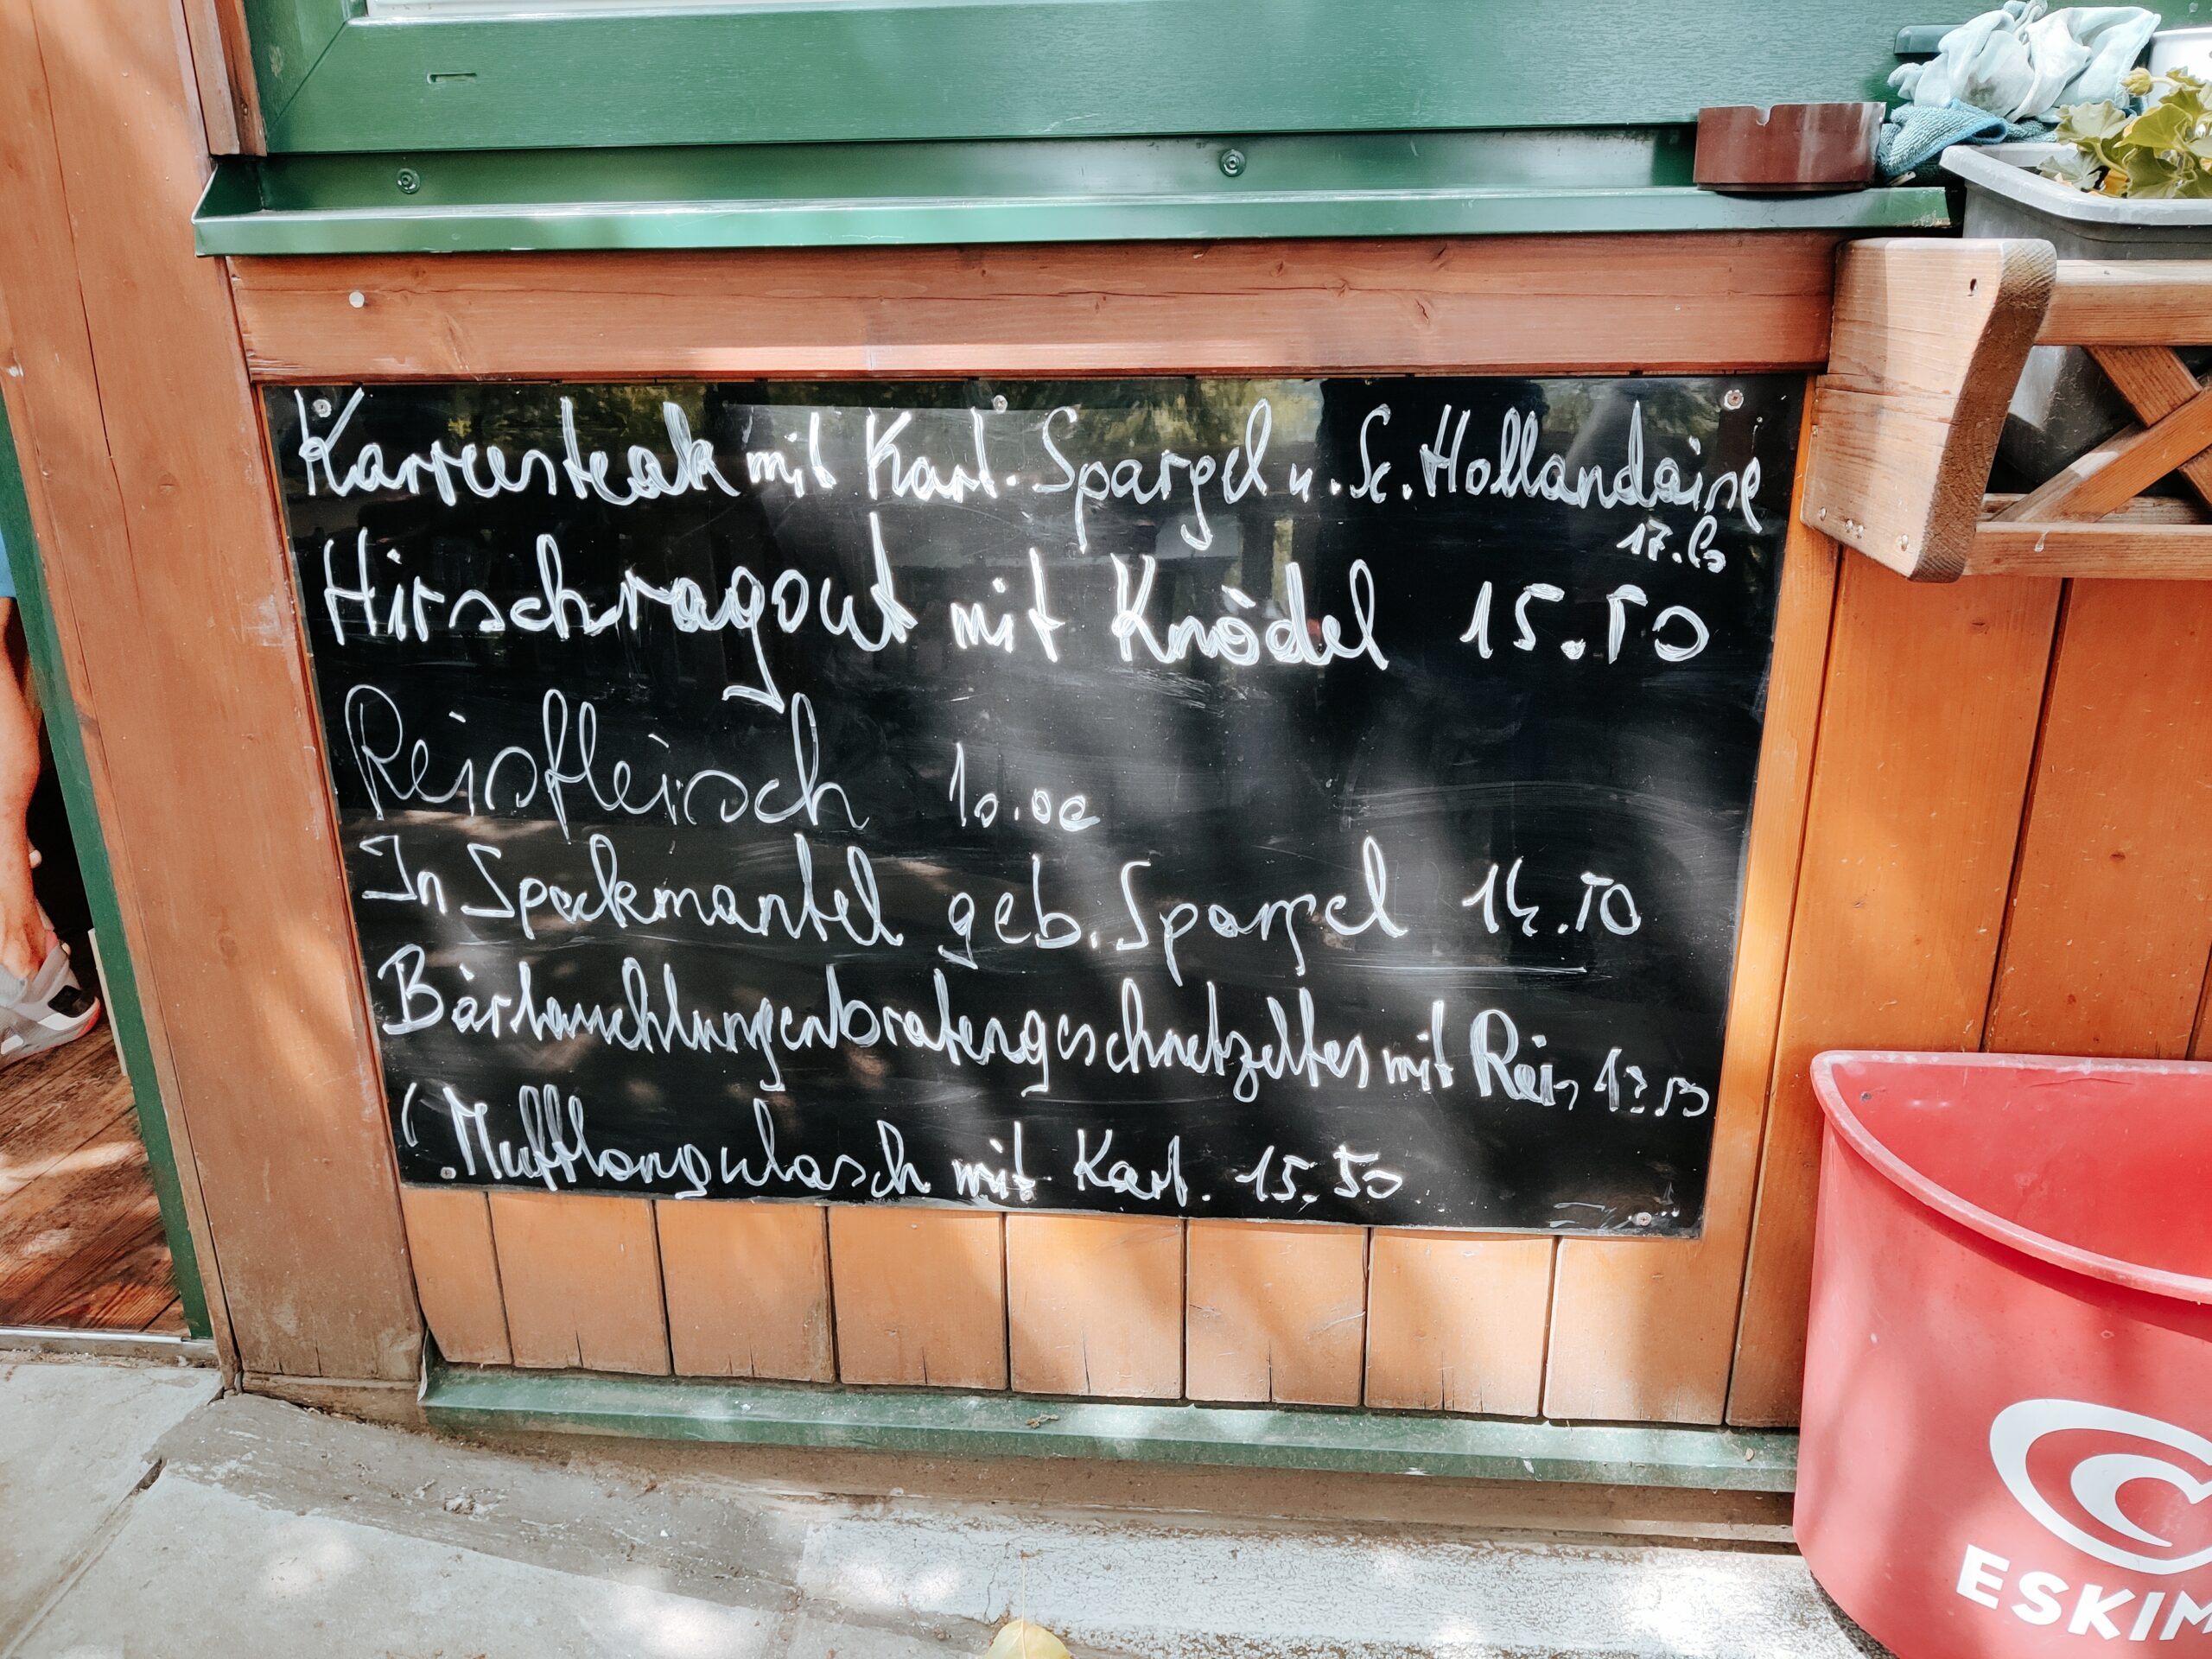 Karreesteak mit Kart. Spargel u. Sc. Hollandaise
Hirschragout mit Knödel 15.50
Reisfleisch 10.00
In Speckmantel geb. Spargel 14.50
Bärlauchlungenbratengeschnetzeltes mit Reis
Mufflongulasch mit Kart. 15.50
ESKIM